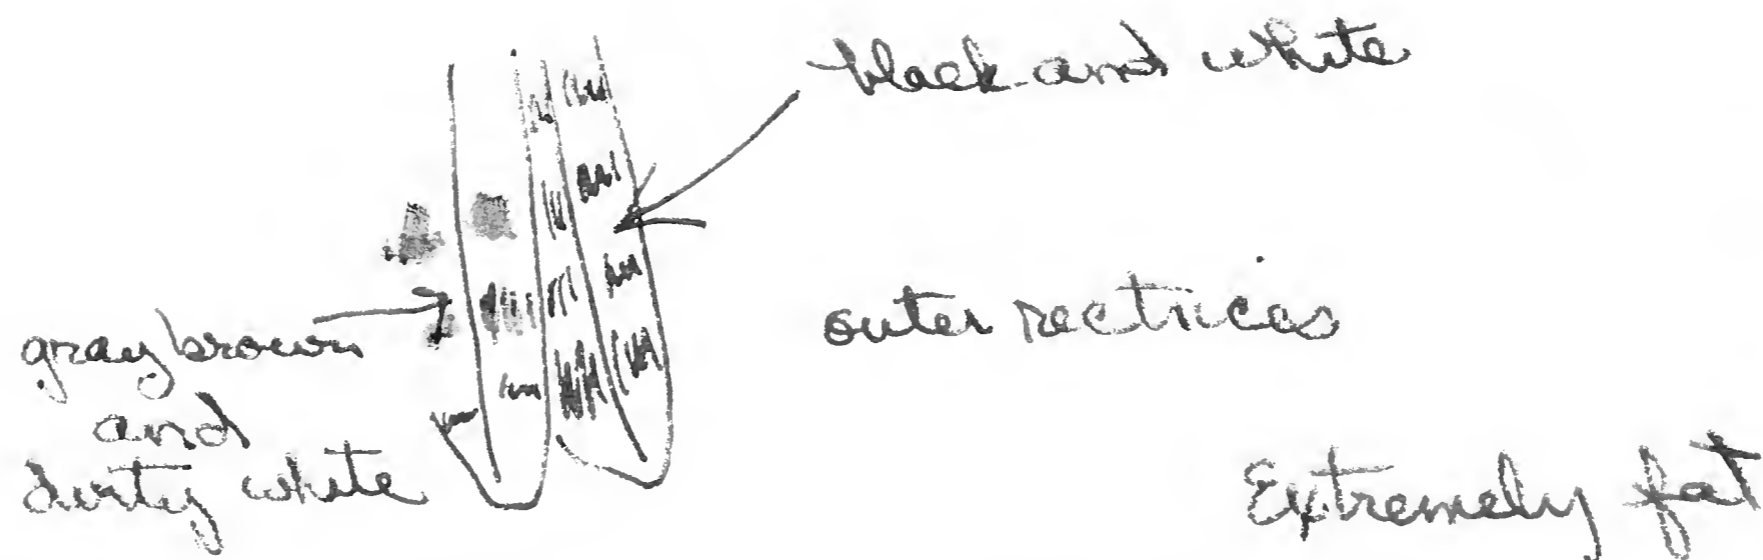 black and white
outer rectrices
gray brown
and
dirty white
Extremely fat